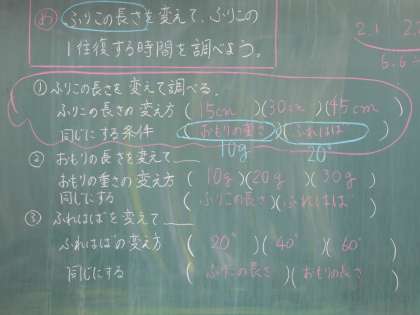 め ふりこの長さを変えて、ふりこの
1往復する時間を調べよう。
2.1
5.6÷
① ふりこの長さを変えて調べる。
ふりこの長さの変え方 (15cm)(30cm)(45cm)
同じにする条件 (おもりの重さ)(ふれはば)
10g 20°
② おもりの長さを変えて
おもりの重さの変え方 (10g)(20g)(30g)
同じにする (ふりこの長さ)(ふれはば)
③ ふれはばを変えて
ふれはばの変え方 (20°)(40°)(60°)
同じにする (ふりこの長さ)(おもりの長さ)